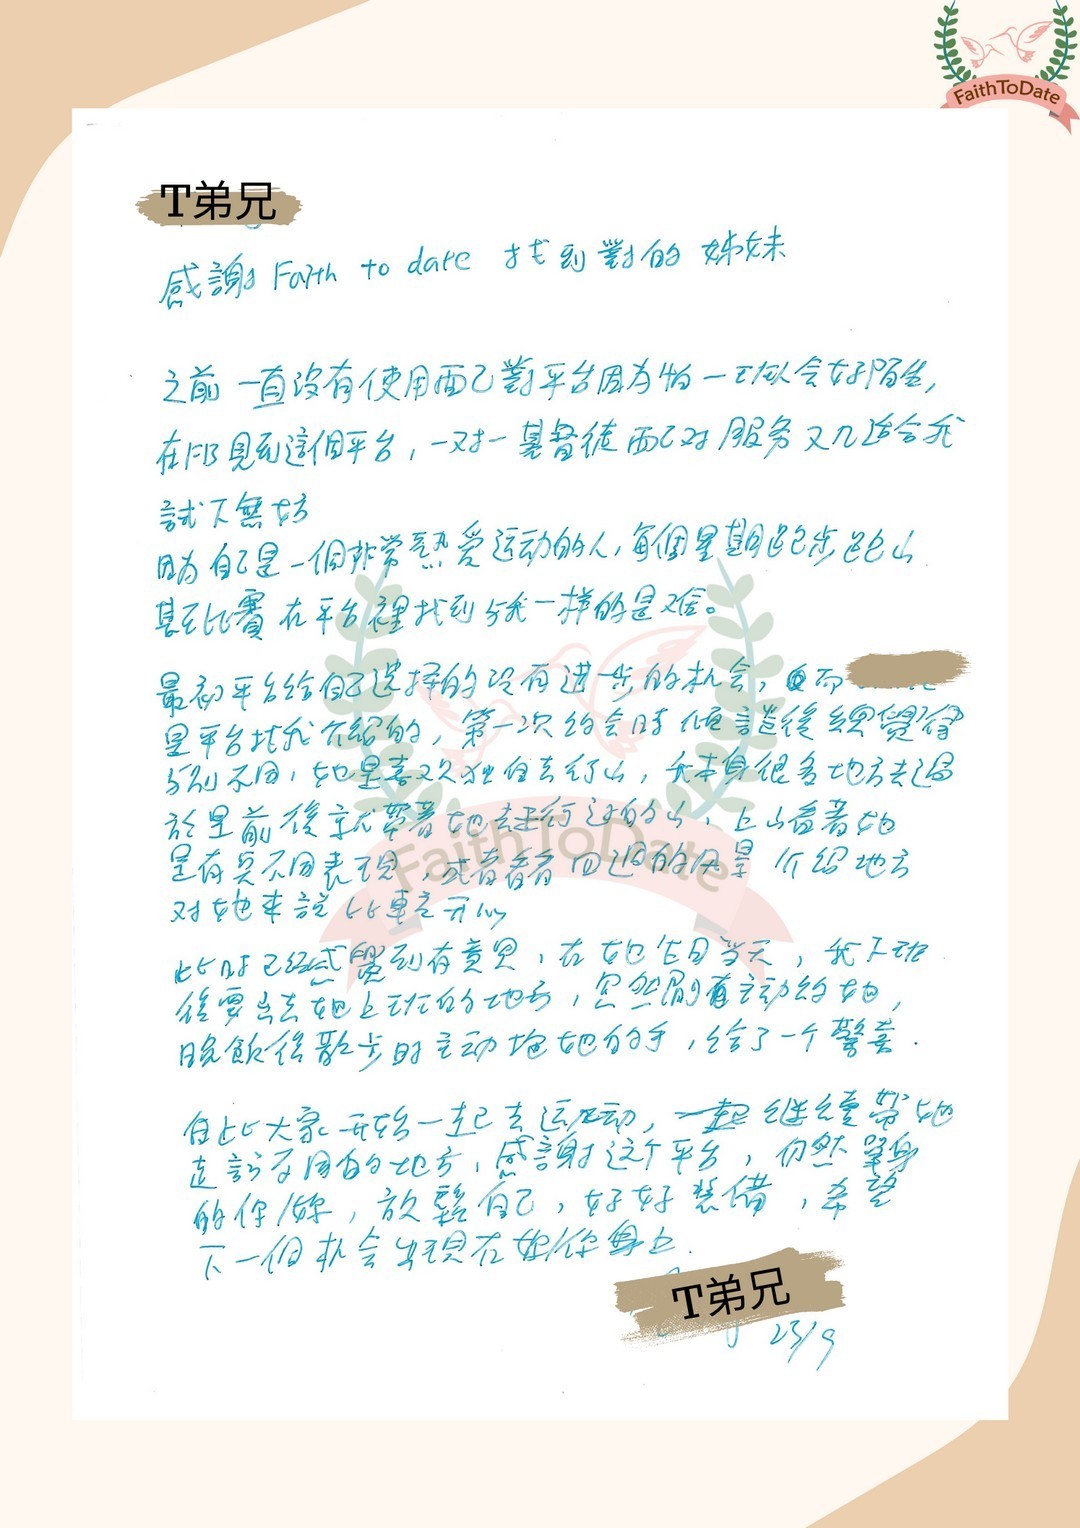 FaithToDate
T弟兄
感謝 Faith to date 找到對的 姊妹
之前一直沒有使用配對平台因為怕一班人会好陌生,
在FB見到這個平台, 一对一 基督徒 配对 服务 又几适合我
試下無妨
因為自己是一個非常熱愛运动的人, 每個星期跑步跑山
甚至比賽 在平台裡找到与我一样的是难。
最初平台给自己选择的沒有进一步的机会,
是平台找我介紹的, 第一次约会時傾談後總覺得
与别不同, 她是喜欢独自去行山, 我本身很多地方去過
於是前後就帶著她去行过的山, 上山看著她
是有與不同表現, 或者看看四週的风景 介绍地方
对她來說比較开心
此时已经感覺到有意思, 在她生日当天, 我下班
後要去她上班的地方, 忽然間有主动约她,
晚飯後散步时主动拖她的手, 给了一个驚喜.
自此大家开始一起去运动, 一起继續帶她
走訪不同的地方, 感謝这个平台, 仍然單身
的你/妳, 放鬆自己, 好好裝備, 希望
下一個机会出现在妳/你身上.
T弟兄
23/9
FaithToDate